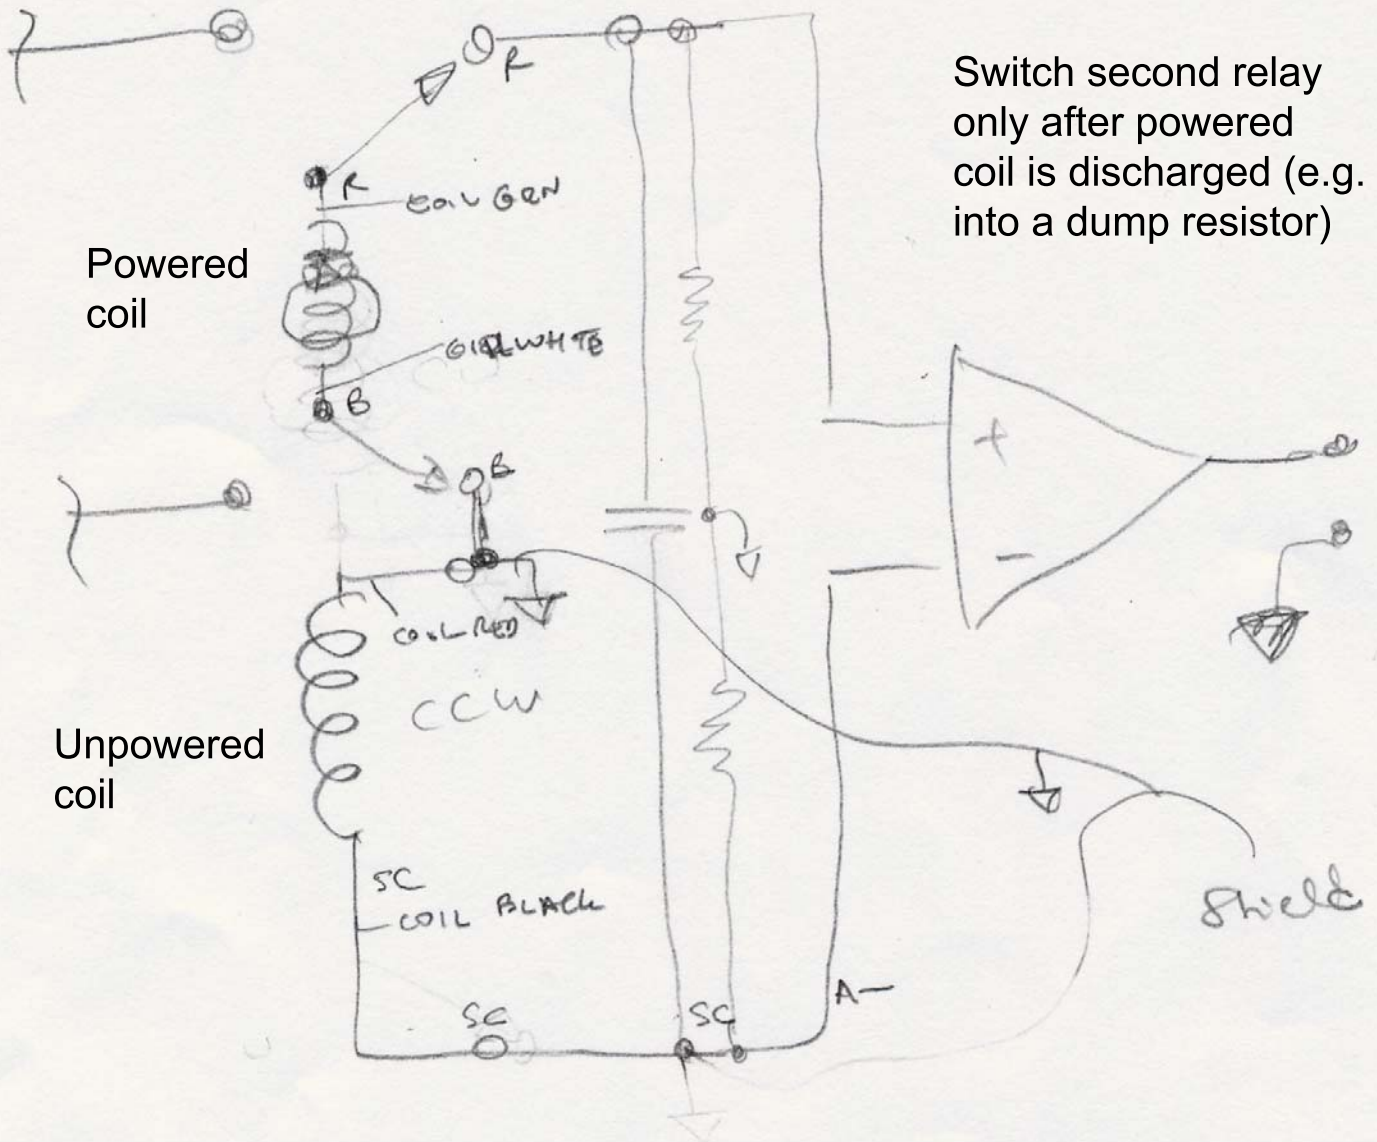 R
Switch second relay
only after powered
coil is discharged (e.g.
into a dump resistor)
R
COIL GRN
Powered
coil
COIL WHTE
B
B
+
−
COIL RED
CCW
Unpowered
coil
SC
COIL BLACK
Shield
A−
SC
SC